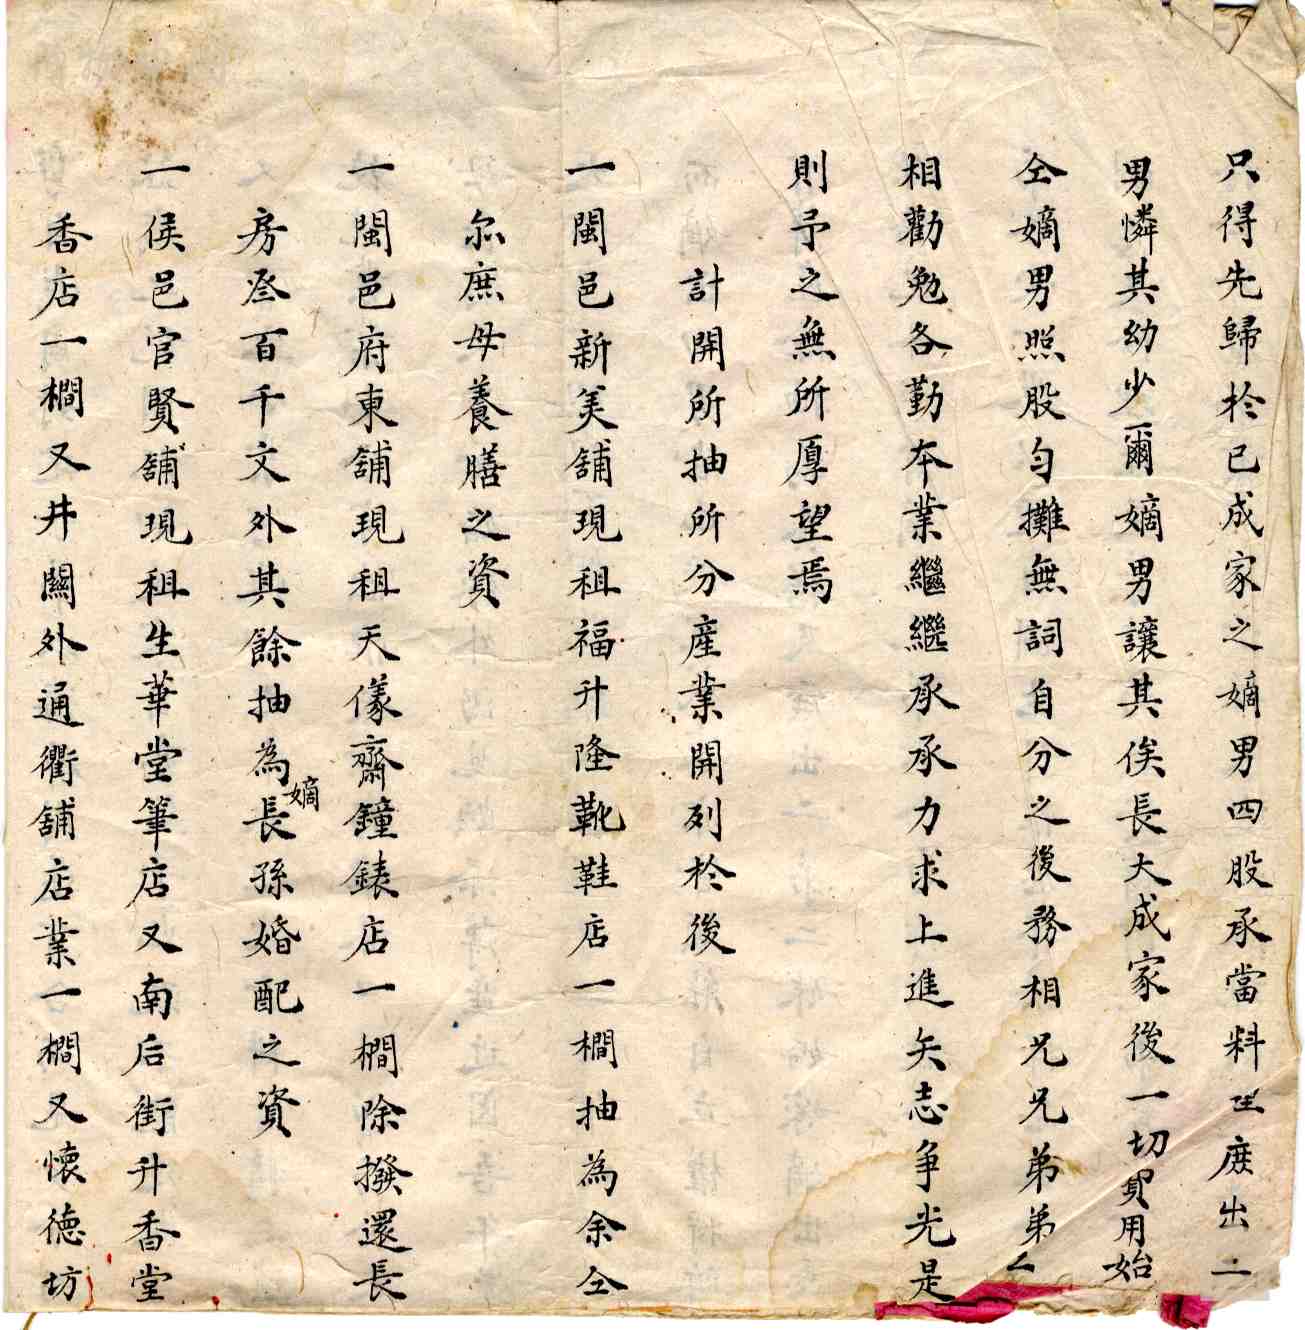 只得先歸於已成家之嫡男四股承當料理庶出二
男憐其幼少爾嫡男讓其俟長大成家後一切費用始
仝嫡男照股勻攤無詞自分之後務相兄兄弟弟
相勸勉各勤本業繼繼承承力求上進矢志爭光是
則予之無所厚望焉
計開所抽所分產業開列於後
一閩邑新美舖現租福升隆靴鞋店一櫚抽為余仝
尔庶母養膳之資
一閩邑府東舖現租天儀齋鐘錶店一櫚除撥還長
房叁百千文外其餘抽為嫡長孫婚配之資
一侯邑官賢舖現租生華堂筆店又南后街升香堂
香店一櫚又井關外通衢舖店業一櫚又懷德坊